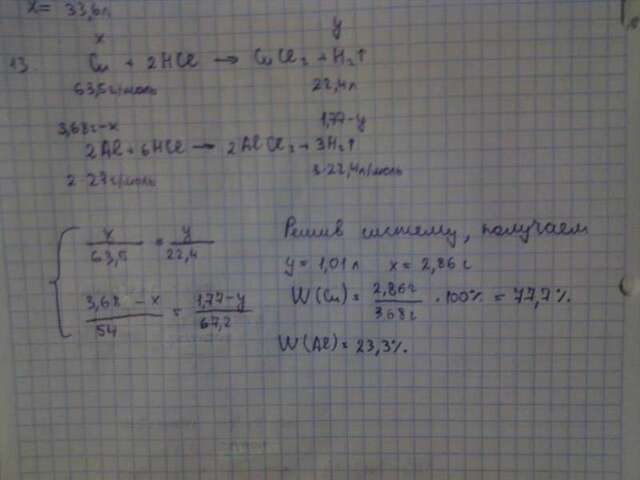 x = 33,6л
x y
13. Cu + 2HCl → CuCl₂ + H₂↑
63,5г/моль 22,4л
3,68г-x 1,77-y
2Al + 6HCl → 2AlCl₃ + 3H₂↑
2·27г/моль 3·22,4л/моль
x/63,5 = y/22,4
(3,68 - x)/54 = (1,77-y)/67,2
Решив систему, получаем
y = 1,01л x = 2,86г
W(Cu) = 2,86г/3,68г · 100% = 77,7%
W(Al) = 23,3%.